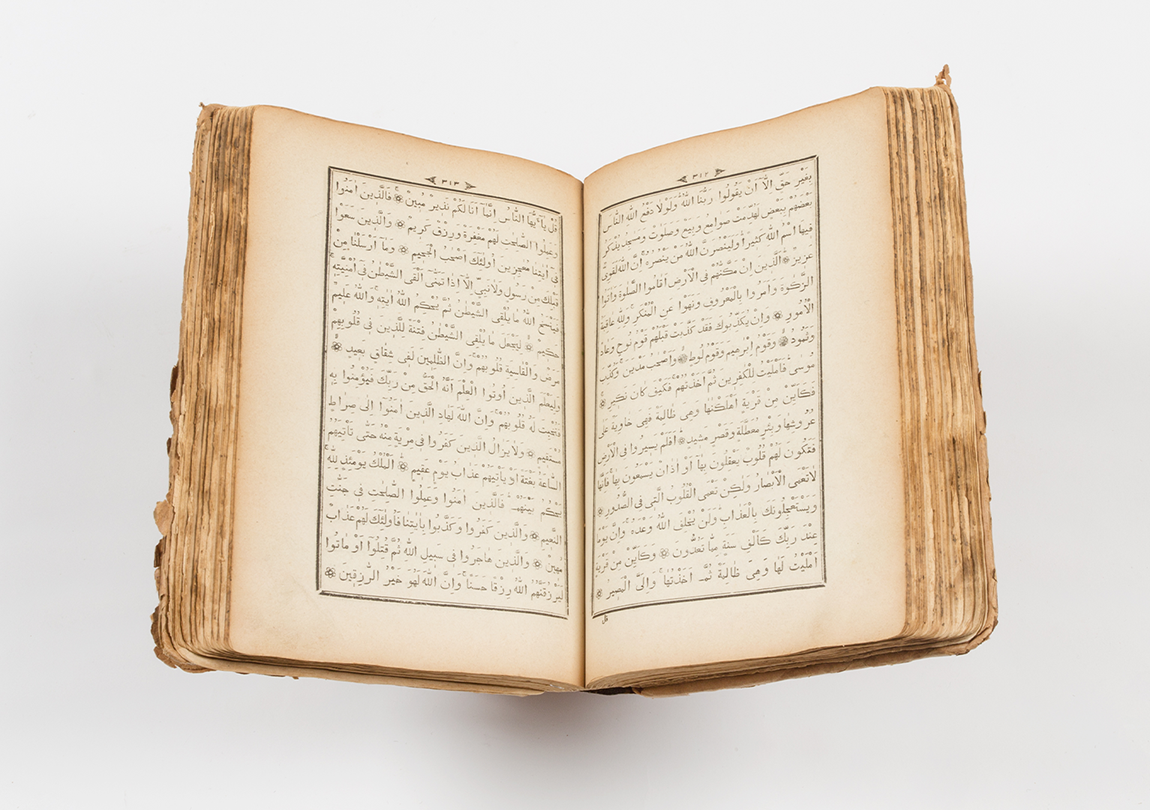 ٣١٢
بِغَيْرِ حَقٍّ اِلَّا اَنْ يَقُولُوا رَبُّنَا اللّٰهُ وَلَوْلَا دَفْعُ اللّٰهِ النَّاسَ
بَعْضَهُمْ بِبَعْضٍ لَهُدِّمَتْ صَوَامِعُ وَبِيَعٌ وَصَلَوٰتٌ وَمَسٰجِدُ يُذْكَرُ
فِيهَا اسْمُ اللّٰهِ كَثِيرًا وَلَيَنْصُرَنَّ اللّٰهُ مَنْ يَنْصُرُهُ اِنَّ اللّٰهَ لَقَوِىٌّ
عَزِيزٌ ۞ اَلَّذِينَ اِنْ مَكَّنّٰهُمْ فِى الْاَرْضِ اَقَامُوا الصَّلٰوةَ وَاٰتَوُا
الزَّكٰوةَ وَاَمَرُوا بِالْمَعْرُوفِ وَنَهَوْا عَنِ الْمُنْكَرِ وَلِلّٰهِ عَاقِبَةُ
الْاُمُورِ ۞ وَاِنْ يُكَذِّبُوكَ فَقَدْ كَذَّبَتْ قَبْلَهُمْ قَوْمُ نُوحٍ وَعَادٌ
وَثَمُودُ ۞ وَقَوْمُ اِبْرٰهِيمَ وَقَوْمُ لُوطٍ ۞ وَاَصْحٰبُ مَدْيَنَ وَكُذِّبَ
مُوسٰى فَاَمْلَيْتُ لِلْكٰفِرِينَ ثُمَّ اَخَذْتُهُمْ فَكَيْفَ كَانَ نَكِيرِ ۞
فَكَاَيِّنْ مِنْ قَرْيَةٍ اَهْلَكْنٰهَا وَهِىَ ظَالِمَةٌ فَهِىَ خَاوِيَةٌ عَلٰى
عُرُوشِهَا وَبِئْرٍ مُعَطَّلَةٍ وَقَصْرٍ مَشِيدٍ ۞ اَفَلَمْ يَسِيرُوا فِى الْاَرْضِ
فَتَكُونَ لَهُمْ قُلُوبٌ يَعْقِلُونَ بِهَا اَوْ اٰذَانٌ يَسْمَعُونَ بِهَا فَاِنَّهَا
لَا تَعْمَى الْاَبْصَارُ وَلٰكِنْ تَعْمَى الْقُلُوبُ الَّتِى فِى الصُّدُورِ ۞
وَيَسْتَعْجِلُونَكَ بِالْعَذَابِ وَلَنْ يُخْلِفَ اللّٰهُ وَعْدَهُ وَاِنَّ يَوْمًا
عِنْدَ رَبِّكَ كَاَلْفِ سَنَةٍ مِمَّا تَعُدُّونَ ۞ وَكَاَيِّنْ مِنْ قَرْيَةٍ
اَمْلَيْتُ لَهَا وَهِىَ ظَالِمَةٌ ثُمَّ اَخَذْتُهَا وَاِلَىَّ الْمَصِيرُ ۞
قل
٣١٣
قُلْ يَا اَيُّهَا النَّاسُ اِنَّمَا اَنَا لَكُمْ نَذِيرٌ مُبِينٌ ۞ فَالَّذِينَ اٰمَنُوا
وَعَمِلُوا الصَّالِحٰتِ لَهُمْ مَغْفِرَةٌ وَرِزْقٌ كَرِيمٌ ۞ وَالَّذِينَ سَعَوْا
فِى اٰيٰتِنَا مُعٰجِزِينَ اُولٰئِكَ اَصْحٰبُ الْجَحِيمِ ۞ وَمَا اَرْسَلْنَا مِنْ
قَبْلِكَ مِنْ رَسُولٍ وَلَا نَبِىٍّ اِلَّا اِذَا تَمَنّٰى اَلْقَى الشَّيْطٰنُ فِى اُمْنِيَّتِهِ
فَيَنْسَخُ اللّٰهُ مَا يُلْقِى الشَّيْطٰنُ ثُمَّ يُحْكِمُ اللّٰهُ اٰيٰتِهِ وَاللّٰهُ عَلِيمٌ
حَكِيمٌ ۞ لِيَجْعَلَ مَا يُلْقِى الشَّيْطٰنُ فِتْنَةً لِلَّذِينَ فِى قُلُوبِهِمْ
مَرَضٌ وَالْقَاسِيَةِ قُلُوبُهُمْ وَاِنَّ الظّٰلِمِينَ لَفِى شِقَاقٍ بَعِيدٍ ۞
وَلِيَعْلَمَ الَّذِينَ اُوتُوا الْعِلْمَ اَنَّهُ الْحَقُّ مِنْ رَبِّكَ فَيُؤْمِنُوا بِهِ
فَتُخْبِتَ لَهُ قُلُوبُهُمْ وَاِنَّ اللّٰهَ لَهَادِ الَّذِينَ اٰمَنُوا اِلٰى صِرَاطٍ
مُسْتَقِيمٍ ۞ وَلَا يَزَالُ الَّذِينَ كَفَرُوا فِى مِرْيَةٍ مِنْهُ حَتّٰى تَاْتِيَهُمُ
السَّاعَةُ بَغْتَةً اَوْ يَاْتِيَهُمْ عَذَابُ يَوْمٍ عَقِيمٍ ۞ اَلْمُلْكُ يَوْمَئِذٍ لِلّٰهِ
يَحْكُمُ بَيْنَهُمْ فَالَّذِينَ اٰمَنُوا وَعَمِلُوا الصَّالِحٰتِ فِى جَنّٰتِ
النَّعِيمِ ۞ وَالَّذِينَ كَفَرُوا وَكَذَّبُوا بِاٰيٰتِنَا فَاُولٰئِكَ لَهُمْ عَذَابٌ
مُهِينٌ ۞ وَالَّذِينَ هَاجَرُوا فِى سَبِيلِ اللّٰهِ ثُمَّ قُتِلُوا اَوْ مَاتُوا
لَيَرْزُقَنَّهُمُ اللّٰهُ رِزْقًا حَسَنًا وَاِنَّ اللّٰهَ لَهُوَ خَيْرُ الرّٰزِقِينَ ۞